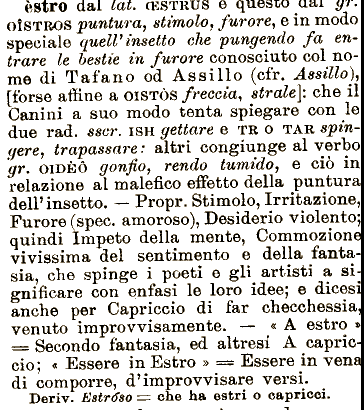 èstro dal lat. ŒSTRUS e questo dal gr.
OÎSTROS puntura, stimolo, furore, e in modo
speciale quell'insetto che pungendo fa en-
trare le bestie in furore conosciuto col no-
me di Tafano od Assillo (cfr. Assillo),
[forse affine a OISTÒS freccia, strale]: che il
Canini a suo modo tenta spiegare con le
due rad. sscr. ISH gettare e TR O TAR spin-
gere, trapassare: altri congiunge al verbo
gr. OIDÈÔ gonfio, rendo tumido, e ciò in
relazione al malefico effetto della puntura
dell'insetto. — Propr. Stimolo, Irritazione,
Furore (spec. amoroso), Desiderio violento;
quindi Impeto della mente, Commozione
vivissima del sentimento e della fanta-
sia, che spinge i poeti e gli artisti a si-
gnificare con enfasi le loro idee; e dicesi
anche per Capriccio di far checchessia,
venuto improvvisamente. — « A estro »
= Secondo fantasia, ed altresì A capric-
cio; « Essere in Estro » = Essere in vena
di comporre, d'improvvisare versi.
Deriv. Estróso = che ha estri o capricci.